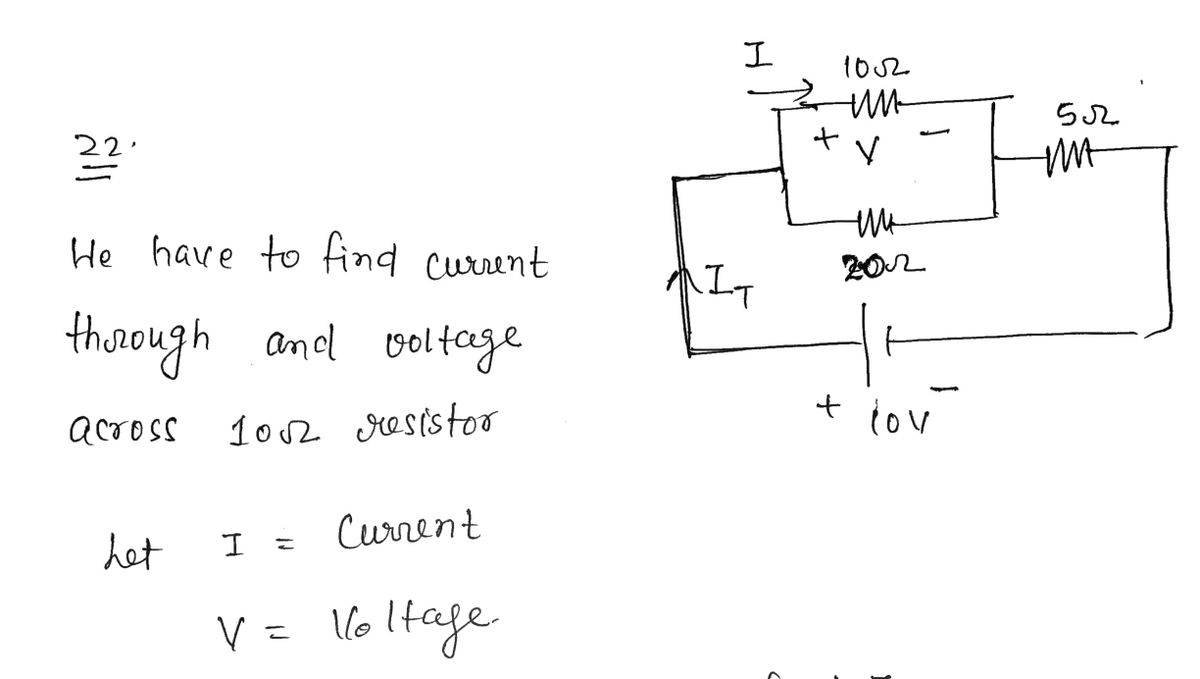 22.
We have to find current
through and voltage
across 10Ω resistor
Let I = Current
V = Voltage.
I
10Ω
+ V -
5Ω
20Ω
I_T
+ 10V -